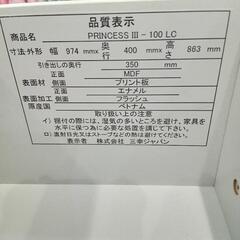 品質表示
商品名 PRINCESS III - 100 LC
寸法外形 幅 974 mmx 奥行 400 mmx 高さ 863 mm
引き出しの奥行 350 mm
表面材 正面 MDF
側面 プリント板
表面加工 正面 エナメル
側面 フラッシュ
原産国 ベトナム
取り扱い上の注意
イ) 据付の際には、湿気の多いところを避け、家具
を水平に保つ為に右右調整してください。
ロ) 直射日光又はストーブなどの熱を避けてください。
表示者 株式会社 三幸ジャパン